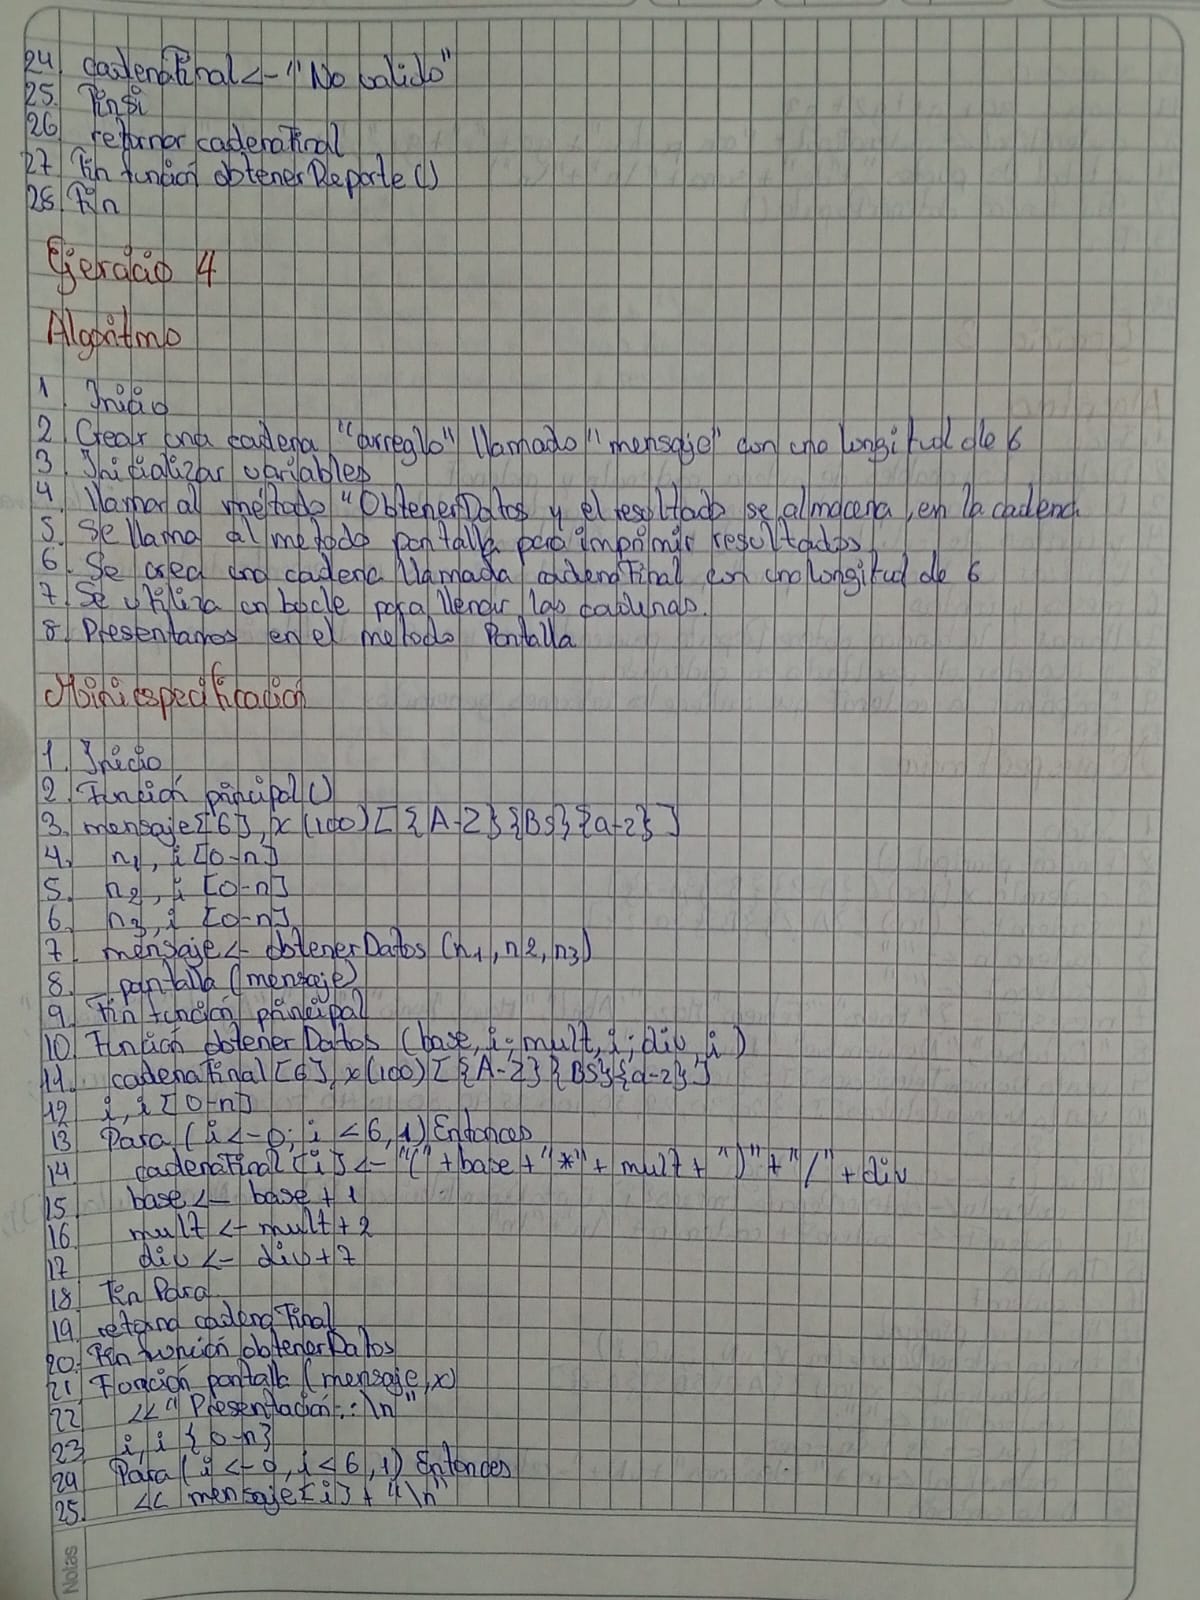 24 cadenaFinal <- "No valido"
25. Finsi
26 retornar cadenaFinal
27 Fin función obtenerReporte ()
28. Fin
Ejercicio 4
Algoritmo
1. Inicio
2. Crear una cadena "arreglo" llamado "mensaje" con una longitud de 6
3. Inicializar variables
4. llamar al método "ObtenerDatos y el resultado se almacena, en la cadena
5. Se llama al metodo pantalla para imprimir resultados
6. Se crea una cadena llamada cadenaFinal con una longitud de 6
7. Se utiliza un bucle para llenar las cadenas.
8. Presentamos en el metodo Pantalla
Miniespecificación
1. Inicio
2. Función principal ()
3. mensaje[6], x (100) [{A-Z}{Bs}{a-z}]
4. n1, i [0-n]
5. n2, i [0-n]
6. n3, i [0-n]
7. mensaje <- obtenerDatos (n1, n2, n3)
8. pantalla (mensaje)
9. Fin función principal
10. Función obtenerDatos (base, i; mult, i; div, i)
11. cadenaFinal [6], x (100) [{A-Z}{Bs}{a-z}]
12 i, i [0-n]
13 Para (i <- 0; i < 6, 1) Entonces
14 cadenaFinal [i] <- "(" + base + "*" + mult + ")" + "/" + div
15 base <- base + 1
16 mult <- mult + 2
17 div <- div + 7
18 Fin Para
19 retorna cadenaFinal
20. Fin función obtenerDatos
21 Función pantalla (mensaje, x)
22 << "Presentación:: \n"
23 i, i {0-n}
24 Para (i <- 0, i < 6, 1) Entonces
25. << mensaje[i] + "\n"
Notas